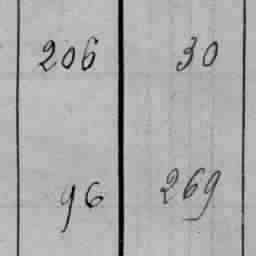 206 30
96 269